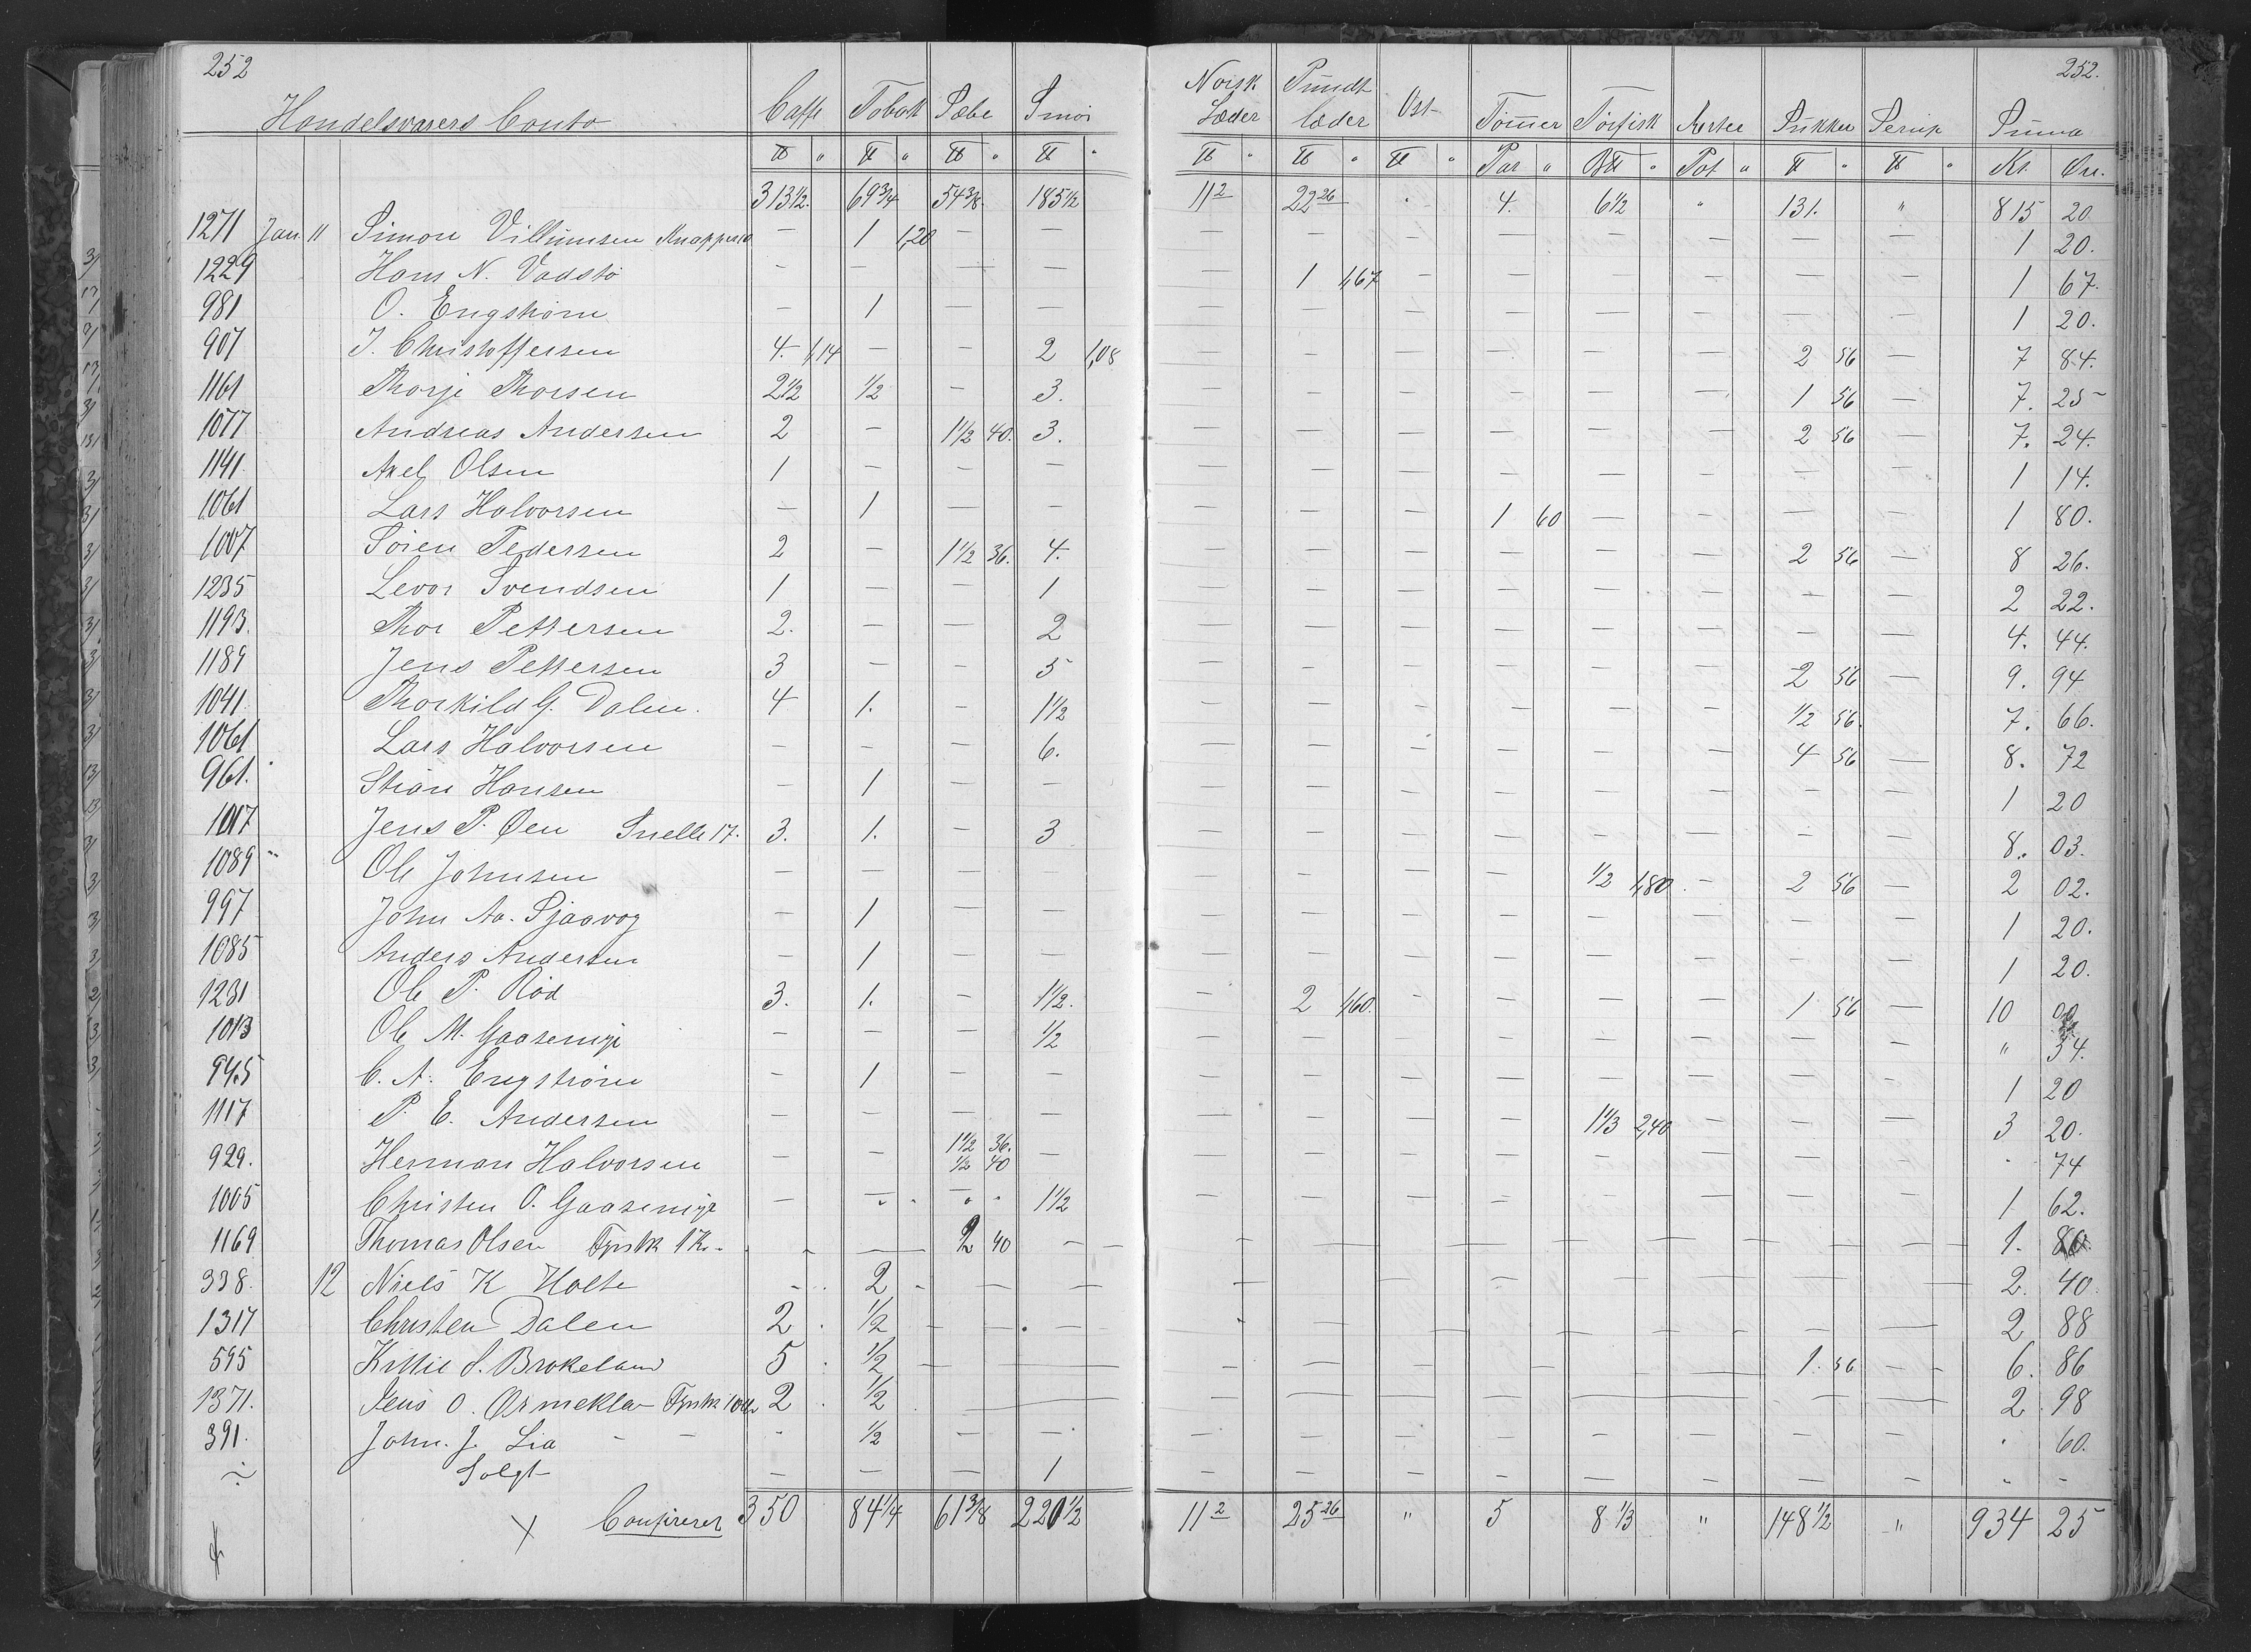 252 252.
Handelsvarers Conto Caffe Tobak Sæbe Smør Norsk Læder Pundt læder Ost Tømmer Tørfisk Aerter Sukker Serup Summa
℔ " ℔ " ℔ " ℔ " ℔ " ℔ " ℔ " Par " B℔ " Pot " ℔ " ℔ " Kr. Øre.
313½. 69¾ 54⅜. 185½ 11² 22²⁶ " 4. 6½ " 131. " 815 20
1271 Jan 11 Simon Villumsen Knapper 10 — 1 1,20 — — — — — — — — — — 1 20.
1229 Hans N. Vadstø — — — — — 1 1,67 — — — — — — 1 67.
981 O. Engstrøm — 1 — — — — — — — — — — 1 20.
907 J. Christoffersen 4. 1,14 — — 2 1,08 — — — — — — 2 56 — 7 84.
1161 Thorje Thorsen 2½ ½ — 3. — — — — — — 1 56 — 7. 25
1077 Andreas Andersen 2 — 1½ 40. 3. — — — — — — 2 56 — 7. 24.
1141. Axel Olsen 1 — — — — — — — — — — — 1 14.
1061 Lars Halvorsen — 1 — — — — — 1 60 — — — — 1 80.
1007 Søren Pedersen 2 — 1½ 36. 4. — — — — — — 2 56 — 8 26.
1235 Levor Svendsen 1 — — 1 — — — — — — — — 2 22.
1193. Thor Pettersen 2. — — 2 — — — — — — — — 4. 44.
1189 Jens Pettersen 3 — — 5 — — — — — — 2 56 — 9. 94
1041. Thorkild G. Dalen. 4 1. — 1½ — — — — — — ½ 56. — 7. 66.
1061 Lars Halvorsen — — — 6. — — — — — — 4 56 — 8. 72
961. Stian Hansen — 1 — — — — — — — — — — 1 20
1017 Jens P. Øen Snelle 17. 3. 1. — 3 — — — — — — — — 8. 03.
1089 Ole Johnsen — — — — — — — — ½ 1,80. — 2 56 — 2 02.
997 John Aa. Sjaavog — 1 — — — — — — — — — — 1 20.
1085 Anders Andersen — 1 — — — — — — — — — — 1 20.
1231 Ole P. Rød 3. 1. — 1½. — 2 1,60. — — — — 1 56 — 10 00
1013 Ole M. Gaasemyr — — — ½ — — — — — — — — " 54.
945 C. A. Engstrøm — 1 — — — — — — — — — — 1 20
1117 P. E. Andersen — — — — — — — — 1⅓ 2,40 — — — 3 20.
929. Herman Halvorsen — — 1½ 36. ½ 40 — — — — — — — — — . 74
1005 Christen O. Gaasemyr — — " " 1½ — — — — — — — — 1 62.
1169 Thomas Olsen 1 Kr. — — 2 40 — — — — — — — — — 1. 80.
338. 12 Niels K Holte — 2 — — — — — — — — — — 2. 40.
1317 Christen Dalen 2 ½ — — — — — — — — — — 2 88
595 Kittil S. Brokeland 5 ½ — — — — — — — — 1. 56 — 6. 86
1371. Jens O. 2 ½ — — — — — — — — — — 2. 98
391. John. J. Lia — ½ — — — — — — — — — — . 60.
÷ Solgt — — — 1 — — — — — — — — " —
Confereret 350 84¼ 61⅜ 220½ 11² 25²⁶ " 5 8⅓ " 148½ " 934 25